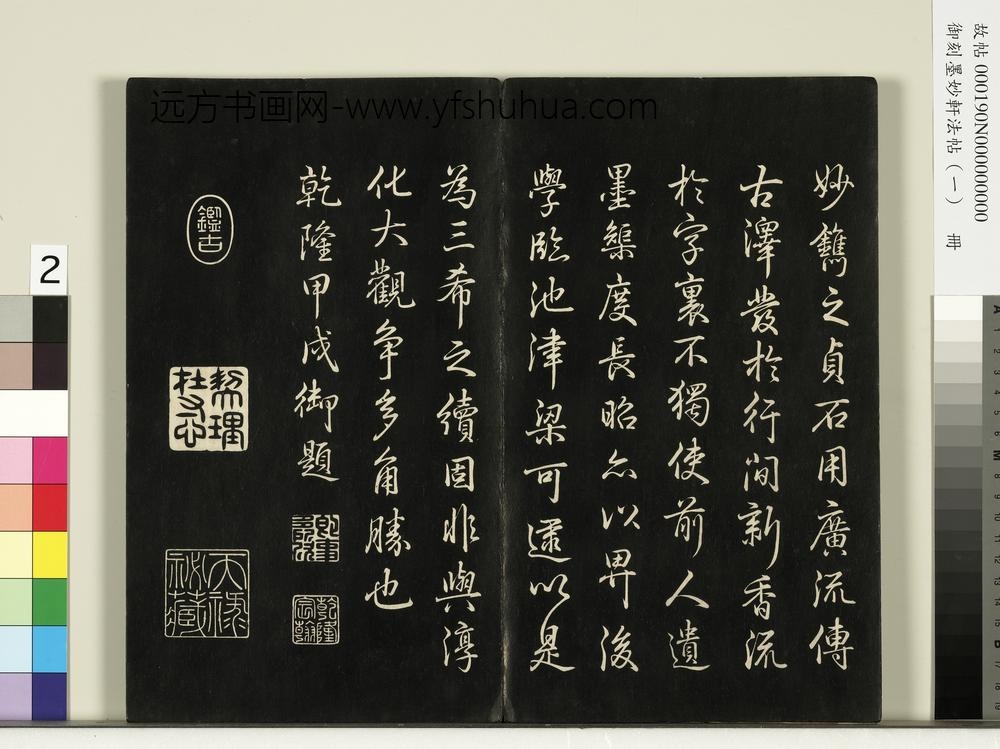 妙鐫之貞石用廣流傳
古澤發於行間新香流
於字裏不獨使前人遺
墨榘度長昭亦以畀後
學臨池津梁可逮以是
為三希之續固非與淳
化大觀争多角勝也
乾隆甲戌御題
乾隆宸翰
鑑古
契理在寸心
天祿祕藏
远方书画网-www.yfshuhua.com
故帖 000190N000000000
御刻墨妙軒法帖（一） 冊
2